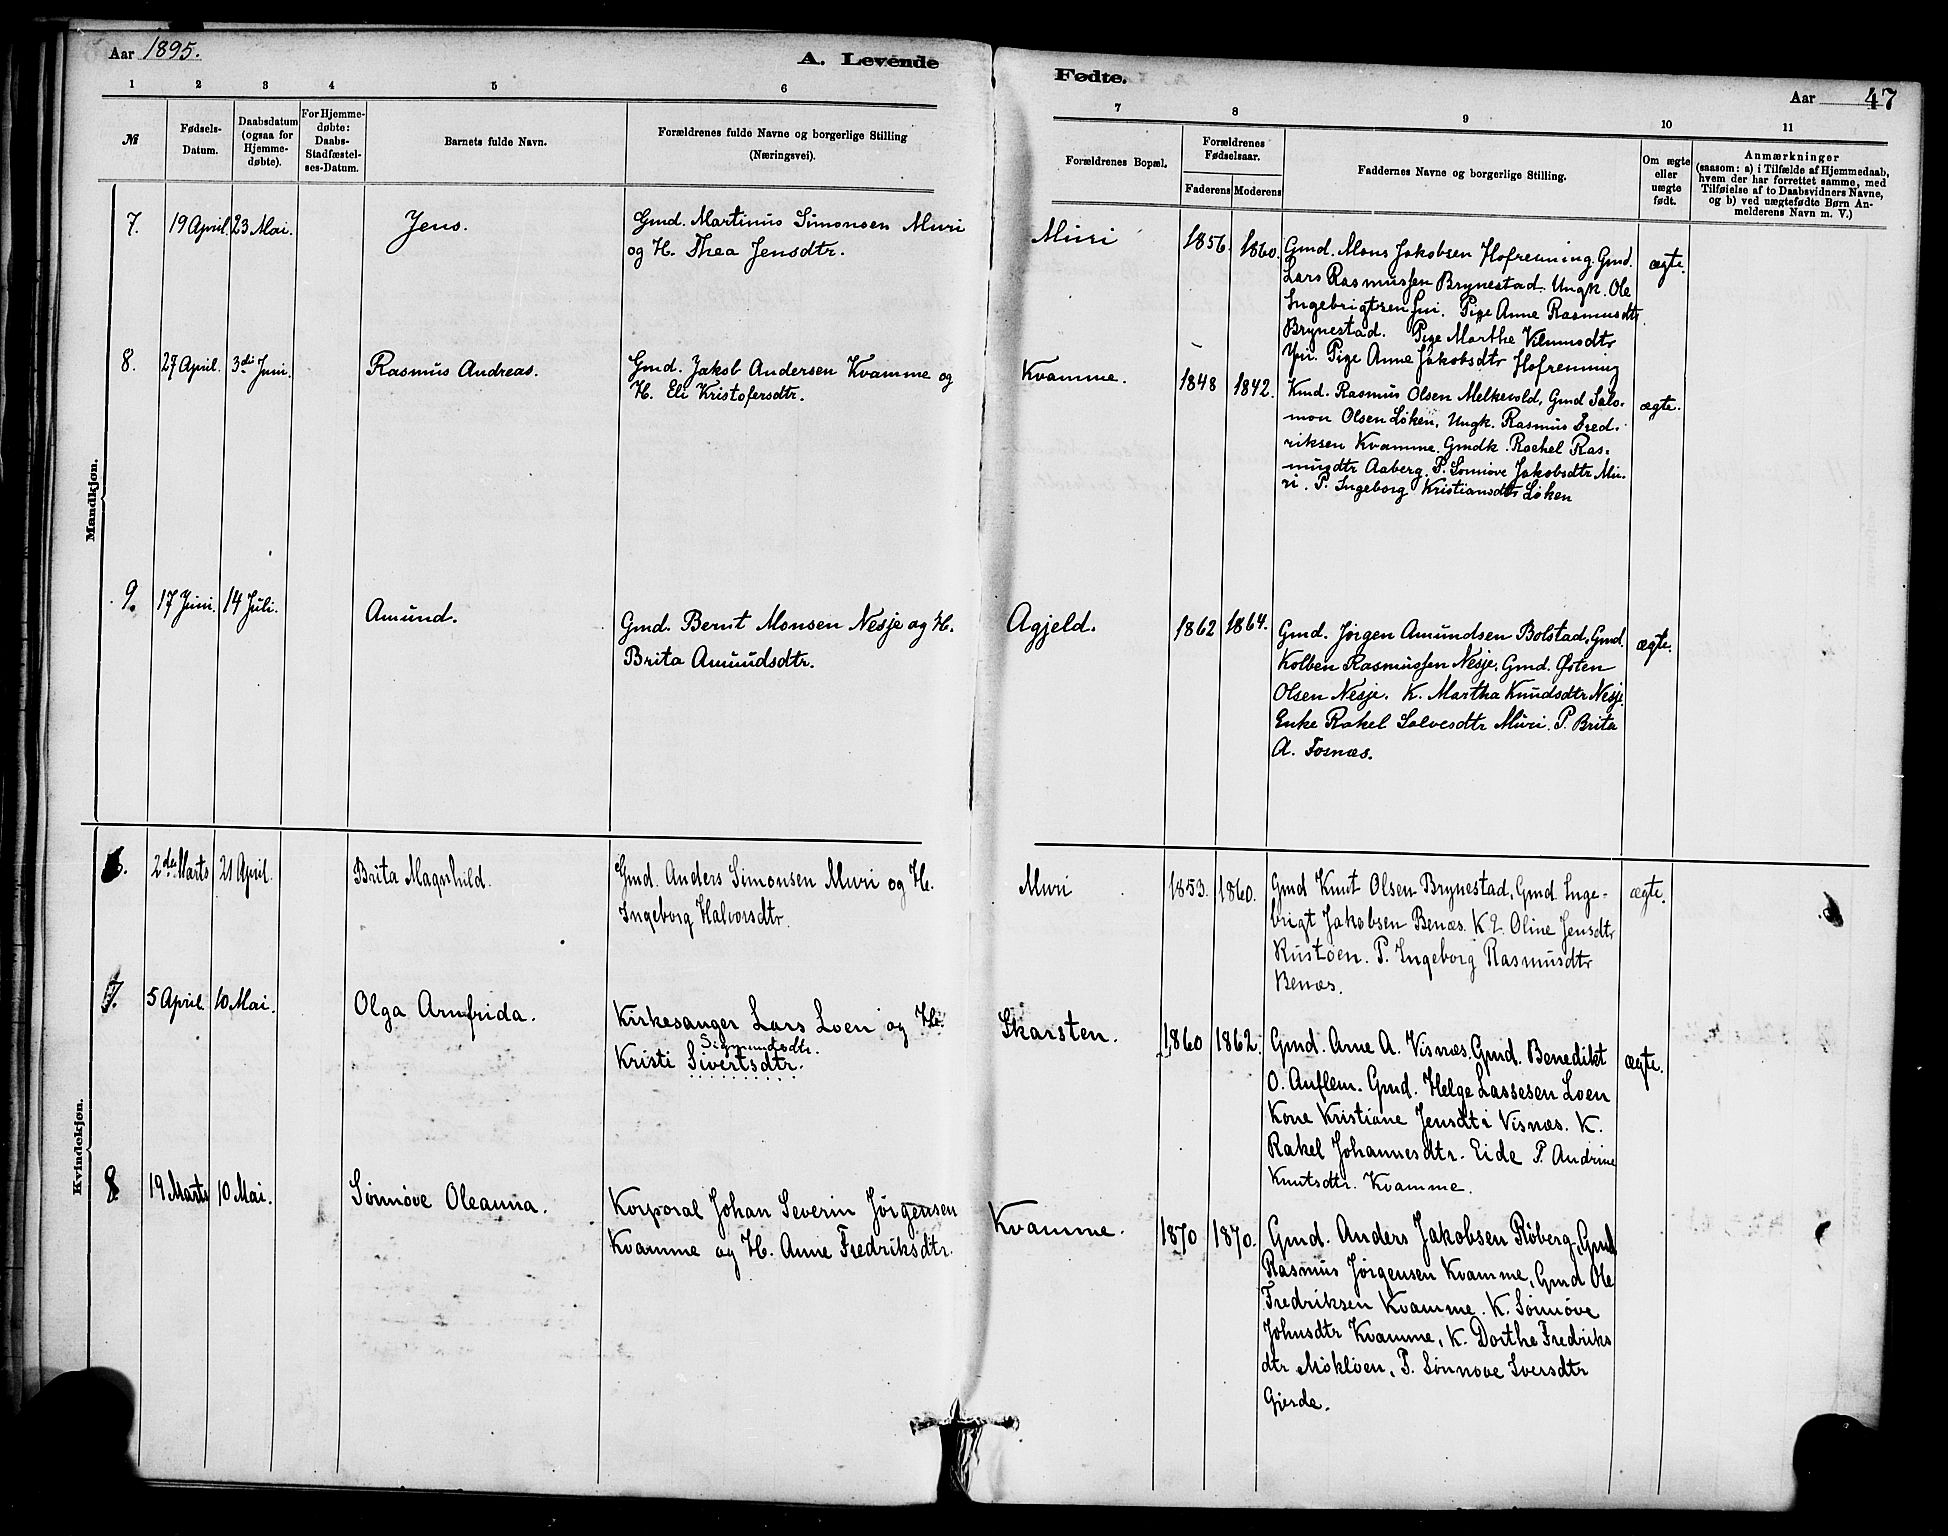 Aar 1895.
A. Levende
Fødte.
Aar 47
1 2 3 4 5 6
7 8 9 10 11
№
Fødsels-
Datum.
Daabsdatum
(ogsaa for
Hjemme-
døbte).
For Hjemme-
døbte:
Daabs-
Stadfæstel-
ses-Datum.
Barnets fulde Navn.
Forældrenes fulde Navne og borgerlige Stilling
(Næringsvei).
Forældrenes Bopæl.
Forældrenes
Fødselsaar.
Faderens Moderens
Faddernes Navne og borgerlige Stilling.
Om ægte
eller
uægte
født.
Anmærkninger
(saasom: a) i Tilfælde af Hjemmedaab,
hvem der har forrettet samme, med
Tilføielse af to Daabsvidners Navne,
og b) ved uægtefødte Børn An-
melderens Navn m. V.)
Mandkjøn.
7. 19 April. 23 Mai. Jens.
Gmd. Martinus Simonsen Muri
og H. Thea Jensdtr.
Muri 1856. 1860.
Gmd. Mons Jakobsen Hofrenning. Gmd.
Lars Rasmussen Brynestad. Ungk. Ole
Ingebrigtsen Yri. Pige Anne Rasmusdtr
Brynestad. Pige Marthe Vilumsdtr
Yri. Pige Anne Jakobsdtr Hofrenning
ægte.
8. 27 April. 3di Juni. Rasmus Andreas.
Gmd. Jakob Andersen Kvamme og
H. Eli Kristofersdtr.
Kvamme. 1848 1842.
Kmd. Rasmus Olsen Melkevold, Gmd Salo-
mon Olsen Løken, Ungk. Rasmus Fred-
riksen Kvamme. Gmdk. Rachel Ras-
musdtr Aaberg. P. Sønnøve Jakobsdtr Mu-
ri. P. Ingeborg Kristiansdtr Løken
ægte.
9. 17 Juni. 14 Juli. Amund.
Gmd. Bernt Monsen Nesje og H.
Brita Amundsdtr.
Agjeld. 1862 1864.
Gmd. Jørgen Amundsen Bolstad, Gmd.
Kolben Rasmussen Nesje, Gmd. Østen
Olsen Nesje. K. Martha Knudsdtr Nesje
Enke Rakel Salvesdtr Muri. P. Brita
A. Fosnæs.
ægte.
Kvindekjøn.
6. 2den Marts 21 April. Brita Magnhild.
Gmd. Anders Simonsen Muri og H.
Ingeborg Halvorsdtr.
Muri 1853. 1860.
Gmd Knut Olsen Brynestad, Gmd. Inge-
brigt Jakobsen Benæs. K Oline Jensdtr
Rustøen. P. Ingeborg Rasmusdtr
Benæs.
ægte.
7. 5 April. 10 Mai. Olga Arnfrida.
Kirkesanger Lars Loen og H.
Sigmundsdtr.
Kristi Sivertsdtr.
Skarsten. 1860 1862.
Gmd. Arne A. Visnæs. Gmd. Benedikt
O. Auflem. Gmd. Helge Lassesen Loen
Kone Kristiane Jensdtr Visnæs. K.
Rakel Johannesdtr. Eide P. Andrine
Knutsdtr. Kvamme.
ægte.
8 19 Marts 10 Mai. Sønnøve Oleanna.
Korporal Johan Severin Jørgensen
Kvamme og H. Anne Fredriksdtr.
Kvamme. 1870 1870.
Gmd. Anders Jakobsen Røberg, Gmd
Rasmus Jørgensen Kvamme, Gmd Ole
Fredriksen Kvamme. K. Sønnøve
Johnsdtr Kvamme, K. Dorthe Fredriks
dtr Mokløen, P. Sønnøve Iversdtr
Gjerde.